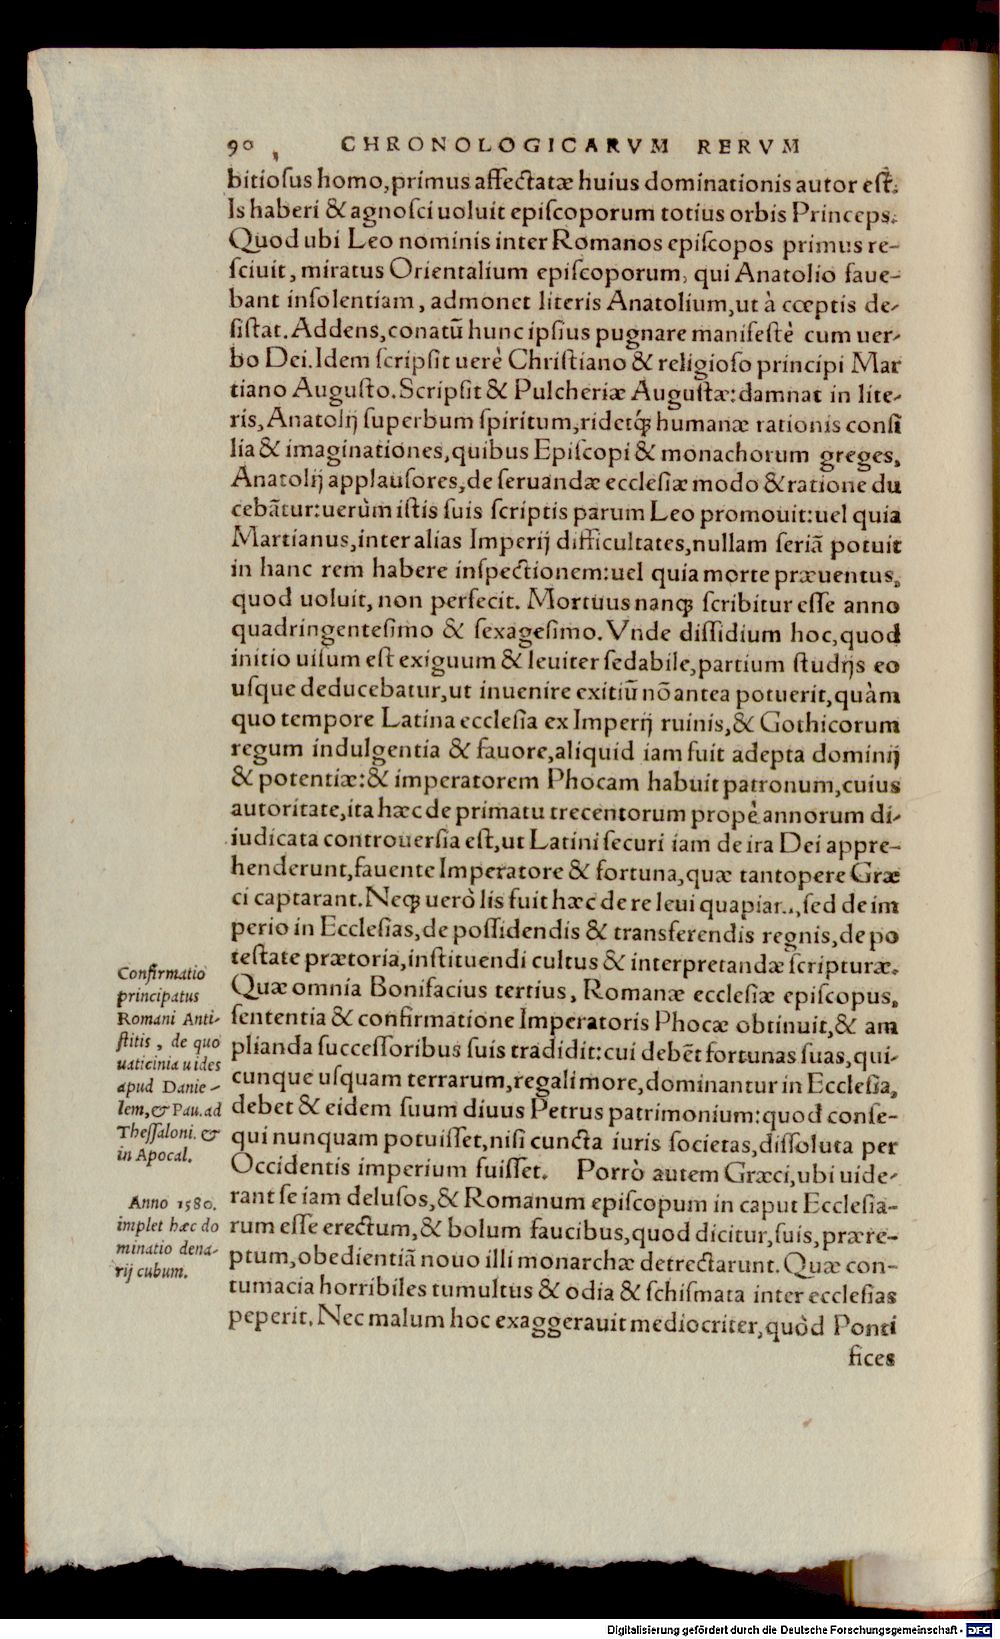 90 CHRONOLOGICARVM RERVM
bitiosus homo, primus affectatæ huius dominationis autor est.
Is haberi & agnosci uoluit episcoporum totius orbis Princeps.
Quod ubi Leo nominis inter Romanos episcopos primus re-
sciuit, miratus Orientalium episcoporum, qui Anatolio faue-
bant insolentiam, admonet literis Anatolium, ut à cœptis de-
sistat. Addens, conatū hunc ipsius pugnare manifestè cum uer-
bo Dei. Idem scripsit uerè Christiano & religioso principi Mar
tiano Augusto. Scripsit & Pulcheriæ Augustæ: damnat in lite-
ris, Anatolij superbum spiritum, ridetq́; humanæ rationis consi
lia & imaginationes, quibus Episcopi & monachorum greges,
Anatolij applausores, de seruandæ ecclesiæ modo & ratione du
cebātur: uerùm istis suis scriptis parum Leo promouit: uel quia
Martianus, inter alias Imperij difficultates, nullam seriā potuit
in hanc rem habere inspectionem: uel quia morte præuentus,
quod uoluit, non perfecit. Mortuus nanq; scribitur esse anno
quadringentesimo & sexagesimo. Vnde dissidium hoc, quod
initio uisum est exiguum & leuiter sedabile, partium studijs eo
usque deducebatur, ut inuenire exitiū nō antea potuerit, quàm
quo tempore Latina ecclesia ex Imperij ruinis, & Gothicorum
regum indulgentia & fauore, aliquid iam fuit adepta dominij
& potentiæ: & imperatorem Phocam habuit patronum, cuius
autoritate, ita hæc de primatu trecentorum propè annorum di-
iudicata controuersia est, ut Latini securi iam de ira Dei appre-
henderunt, fauente Imperatore & fortuna, quæ tantopere Græ
ci captarant. Neq; uerò lis fuit hæc de re leui quapiam, sed de im
perio in Ecclesias, de possidendis & transferendis regnis, de po
testate prætoria, instituendi cultus & interpretandæ scripturæ.
Quæ omnia Bonifacius tertius, Romanæ ecclesiæ episcopus,
sententia & confirmatione Imperatoris Phocæ obtinuit, & am
plianda successoribus suis tradidit: cui debēt fortunas suas, qui-
cunque usquam terrarum, regali more, dominantur in Ecclesia,
debet & eidem suum diuus Petrus patrimonium: quod conse-
qui nunquam potuisset, nisi cuncta iuris societas, dissoluta per
Occidentis imperium fuisset. Porrò autem Græci, ubi uide-
rant se iam delusos, & Romanum episcopum in caput Ecclesia-
rum esse erectum, & bolum faucibus, quod dicitur, suis, prære-
ptum, obedientiā nouo illi monarchæ detrectarunt. Quæ con-
tumacia horribiles tumultus & odia & schismata inter ecclesias
peperit. Nec malum hoc exaggerauit mediocriter, quòd Ponti
fices
Confirmatio
principatus
Romani Anti-
stitis, de quo
uaticinia uides
apud Danie-
lem, & Pau. ad
Thessaloni. &
in Apocal.
Anno 1580.
implet hæc do
minatio dena-
rij cubum.
Digitalisierung gefördert durch die Deutsche Forschungsgemeinschaft - DFG